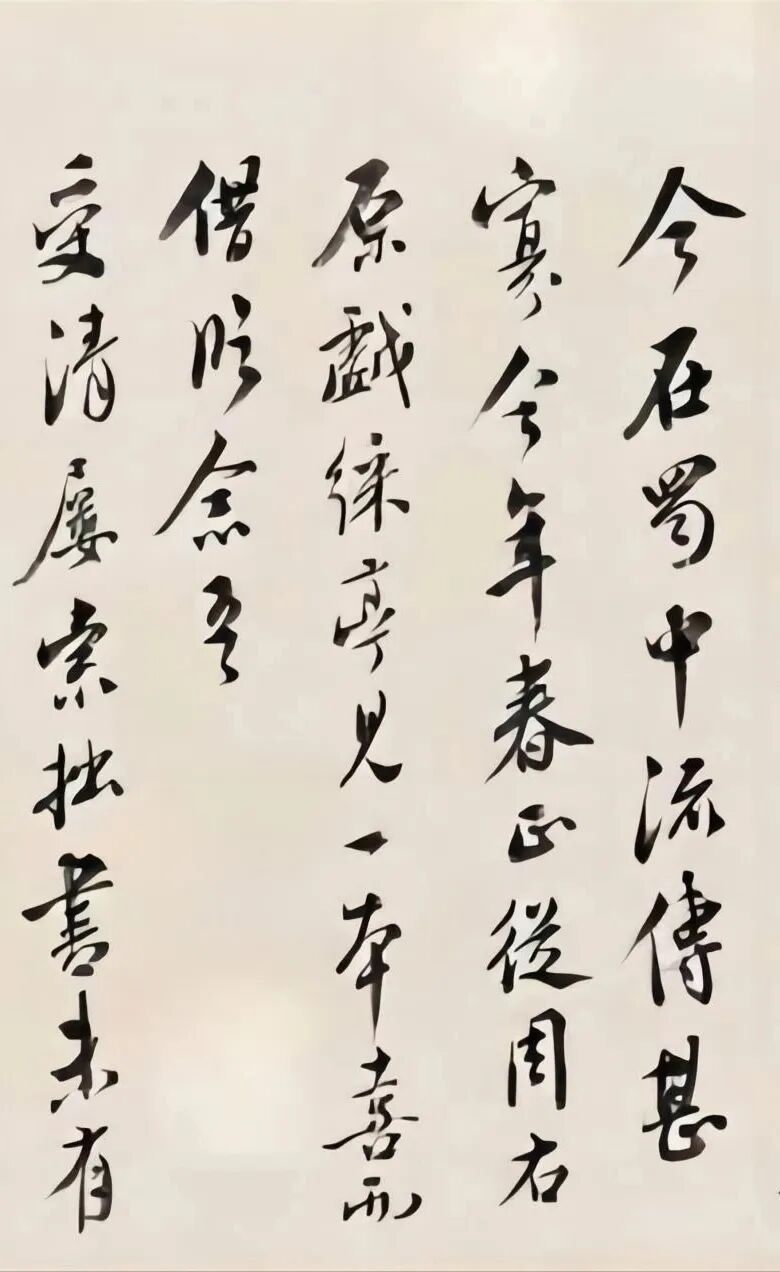 今在蜀中流傳甚
寡今年春正從周右
原戲綵亭見一本喜而
借臨念吾
受清屢索拙書未有